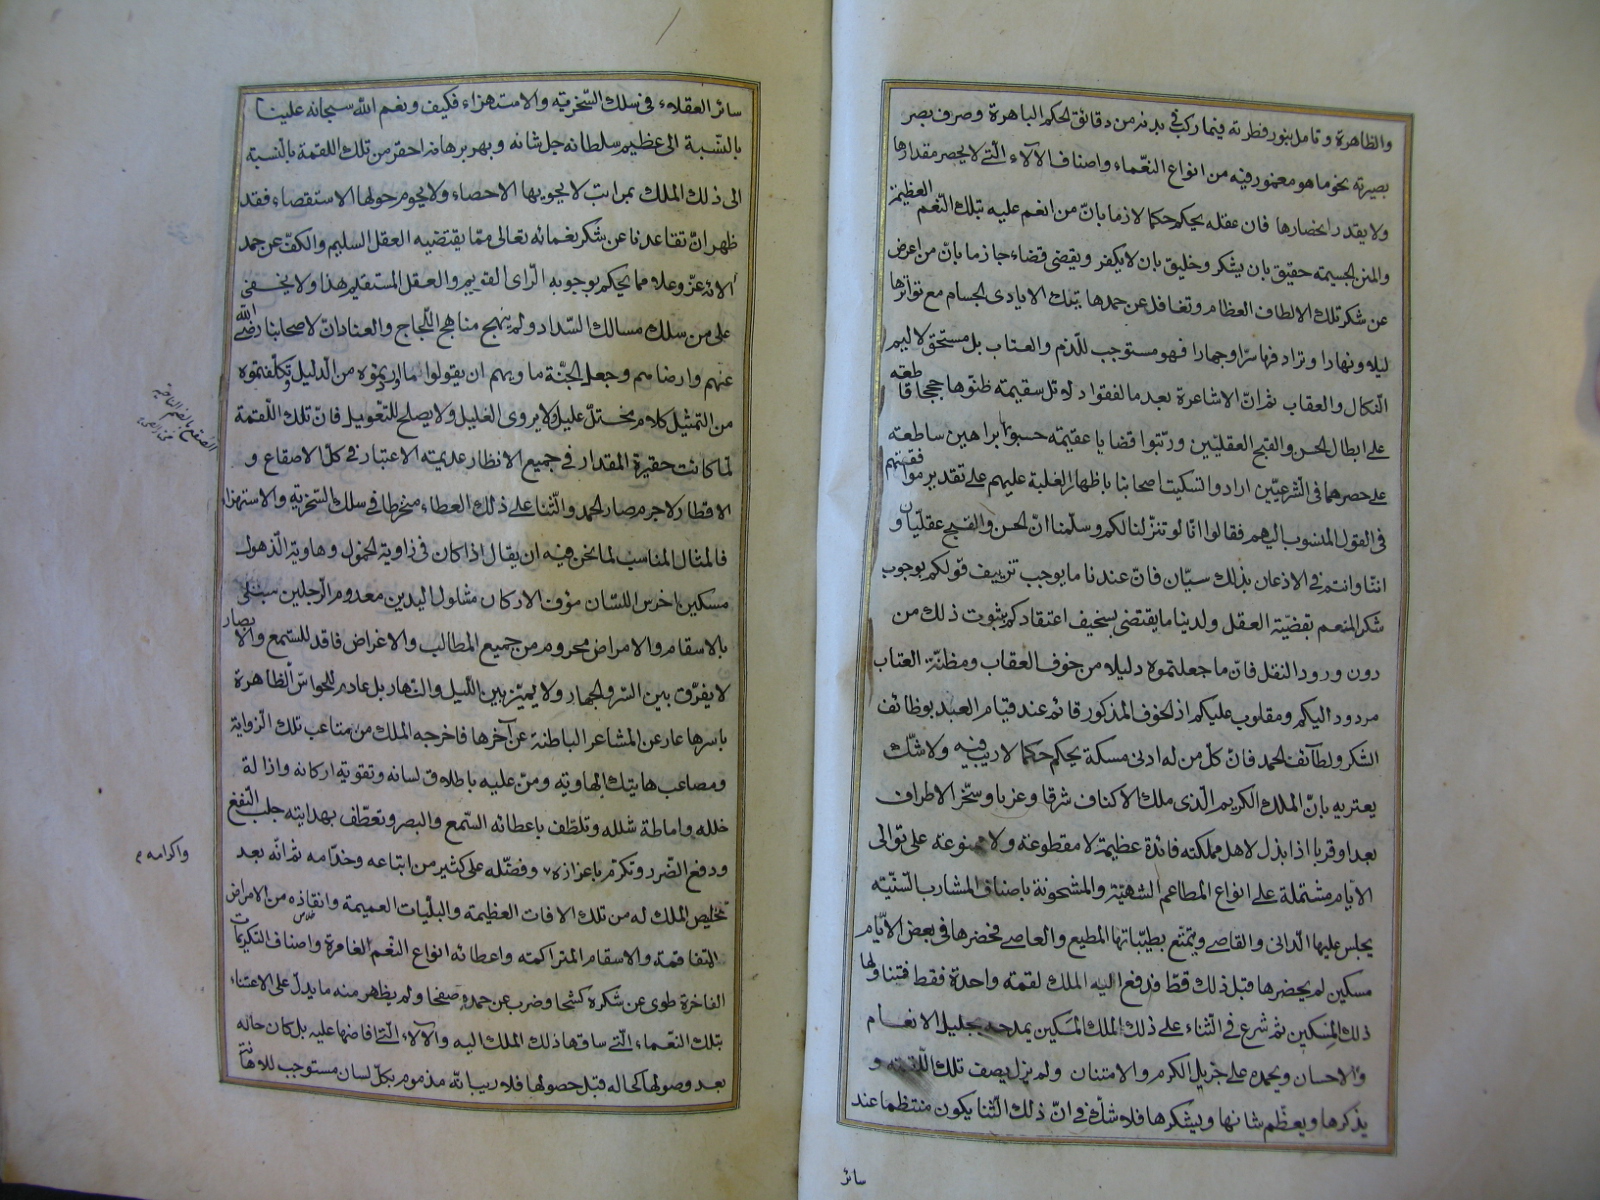 والظاهرة وتامل بنور فطرته فيما ركب في بدنه من دقائق الحكم الباهرة وصرف بصر
بصيرته نحو ما هو مغمور فيه من انواع النعماء واصناف الآلاء الّتي لا يحصر مقدارها
ولا يقدر انحصارها فان عقله يحكم حكما لازما بانّ من انعم عليه بتلك النّعم العظيمة
والمنن الجسيمة حقيق بان يشكر وخليق بان لا يكفر ويقضى قضاء جازما بانّ من اعرض
عن شكر تلك الالطاف العظام وتغافل عن حمدها بتلك الايادى الجسام مع تواترها
ليلا ونهارا وترادفها سرّا وجهارا فهو مستوجب للذم والعتاب بل مستحق لاليم
النّكال والعقاب ثم انّ الاشاعرة بعد ما لفقوا دلائل سقيمة ظنّوها حججا قاطعة
على ابطال الحسن والقبح العقليّين ورتّبوا قضايا عقيمة حسبوها براهين ساطعة
على حصرهما فى الشرعيّين ارادوا تسكيت اصحابنا باظهار الغلبة عليهم على تقدير موافقتهم
فى القول المنسوب اليهم فقالوا انّا لو تنزلنا لكم وسلّمنا انّ الحسن والقبح عقليّان و
انّنا وانتم فى الاذعان بذلك سيّان فانّ عندنا ما يوجب تزييف قولكم بوجوب
شكر المنعم بقضيّة العقل ولدينا ما يقتضى بسخيف اعتقادكم بثبوت ذلك من
دون ورود النقل فانّ ما جعلتموه دليلا من خوف العقاب ومظنّة العتاب
مردود اليكم ومقلوب عليكم اذ الخوف المذكور قائم عند قيام العبد بوظائف
الشكر ولطائف الحمد فانّ كلّ من له ادنى مسكة يحكم حكما لا ريب فيه ولا شكّ
يعتريه بانّ الملك الكريم الّذى ملك الاكناف شرقا وغربا وسخّر الاطراف
بعدا وقربا اذا بذل لاهل مملكته فائدة عظيمة لا مقطوعة ولا ممنوعة على توالى
الايّام مشتملة على انواع المطاعم الشهيّة والمشحونة باصناف المشارب السّنيّة
يجلس عليها الدّانى والقاصى ويتمتّع بطيّباتها المطيع والعاصى فحضرها فى بعض الايّام
مسكين لم يحضرها قبل ذلك قطّ فدفع اليه الملك لقمة واحدة فقط فتناولها
ذلك المسكين ثم شرع فى الثّناء على ذلك الملك المكين يمدحه بجليل الانعام
والاحسان ويحمده على جزيل الكرم والامتنان ولم يزل يصف تلك اللّقمة و
يذكرها ويعظّم شانها ويشكرها فلا شكّ فى انّ ذلك الثّنا يكون منتظما عند
سائر
سائر العقلاء فى سلك السّخريّة والاستهزاء فكيف ونعم الله سبحانه علينا
بالنّسبة الى عظيم سلطانه جل شانه وبهر برهانه احقر من تلك اللقمة بالنّسبة
الى ذلك الملك بمراتب لا يحويها الاحصاء ولا يحوم حولها الاستقصاء فقد
ظهر انّ تقاعدنا عن شكر نعمائه تعالى ممّا يقتضيه العقل السليم والكفّ عن حمد
آلائه عزّ وعلا مما يحكم بوجوبه الرّاى القويم والعقل المستقيم هذا ولا يخفى
على من سلك مسالك السّداد ولم ينهج مناهج اللّجاج والعناد انّ لاصحابنا رضى الله
عنهم وارضاهم وجعل الجنّة ماويهم ان يقولوا ما اوردتموه من الدّليل وتكلّفتموه
من التمثيل كلام مختلّ عليل لا يروى الغليل ولا يصلح للتّعويل فانّ تلك اللّقمة
لمّا كانت حقيرة المقدار فى جميع الانظار عديمة الاعتبار فى كلّ الاصقاع و
الاقطار لاجرم صار الحمد والثّنا على ذلك العطاء منخرطا فى سلك السّخرية والاستهزاء
فالمثال المناسب لما نحن فيه ان يقال اذا كان فى زاوية الخمول وهاوية الذّهول
مسكين اخرس اللسان مؤف الاركان مشلول اليدين معدوم الرّجلين مبتلى
بالاسقام والامراض محروم من جميع المطالب والاغراض فاقد للسّمع والابصار
لا يفرّق بين السّر والجهار ولا يميّز بين اللّيل والنّهار بل عادم للحواسّ الظاهرة
باسرها عار عن المشاعر الباطنة عن آخرها فاخرجه الملك من متاعب تلك الزّواية
ومصاعب هاتيك الهاوية ومنّ عليه باطلاق لسانه وتقوية اركانه وازالة
خلله واماطة شلله وتلطّف باعطائه السّمع والبصر وتعطّف بهدايته جلب النّفع
ودفع الضّرر وتكرّم باعزازه وفضّله على كثير من اتباعه وخدّامه ثم انّه بعد
واكرامه
تخليص الملك له من تلك الافات العظيمة والبليّات العميمة وانقاذه من الامراض
المتفاقمة والاسقام المتراكمة واعطائه انواع النّعم الغامرة واصناف التكريمات
الفاخرة طوى عن شكره كشحا وضرب عن حمده صفحا ولم يظهر منه ما يدلّ على الاعتناء
بتلك النّعماء الّتى ساقها ذلك الملك اليه والآلاء الّتى افاضها عليه بل كان حاله
بعد وصولها كحاله قبل حصولها فلا ريب انّه مذموم بكلّ لسان مستوجب للاهانة